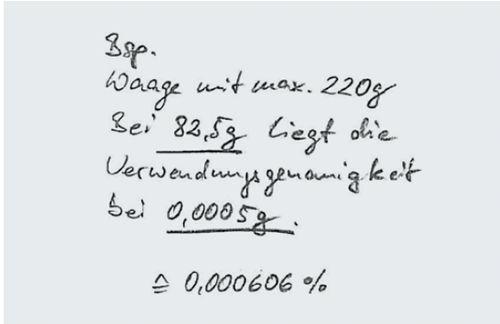 Bsp.
Waage mit max. 220g
Bei 82,5g liegt die
Verwendungsgenauigkeit
bei 0,0005g.
≙ 0,000606 %